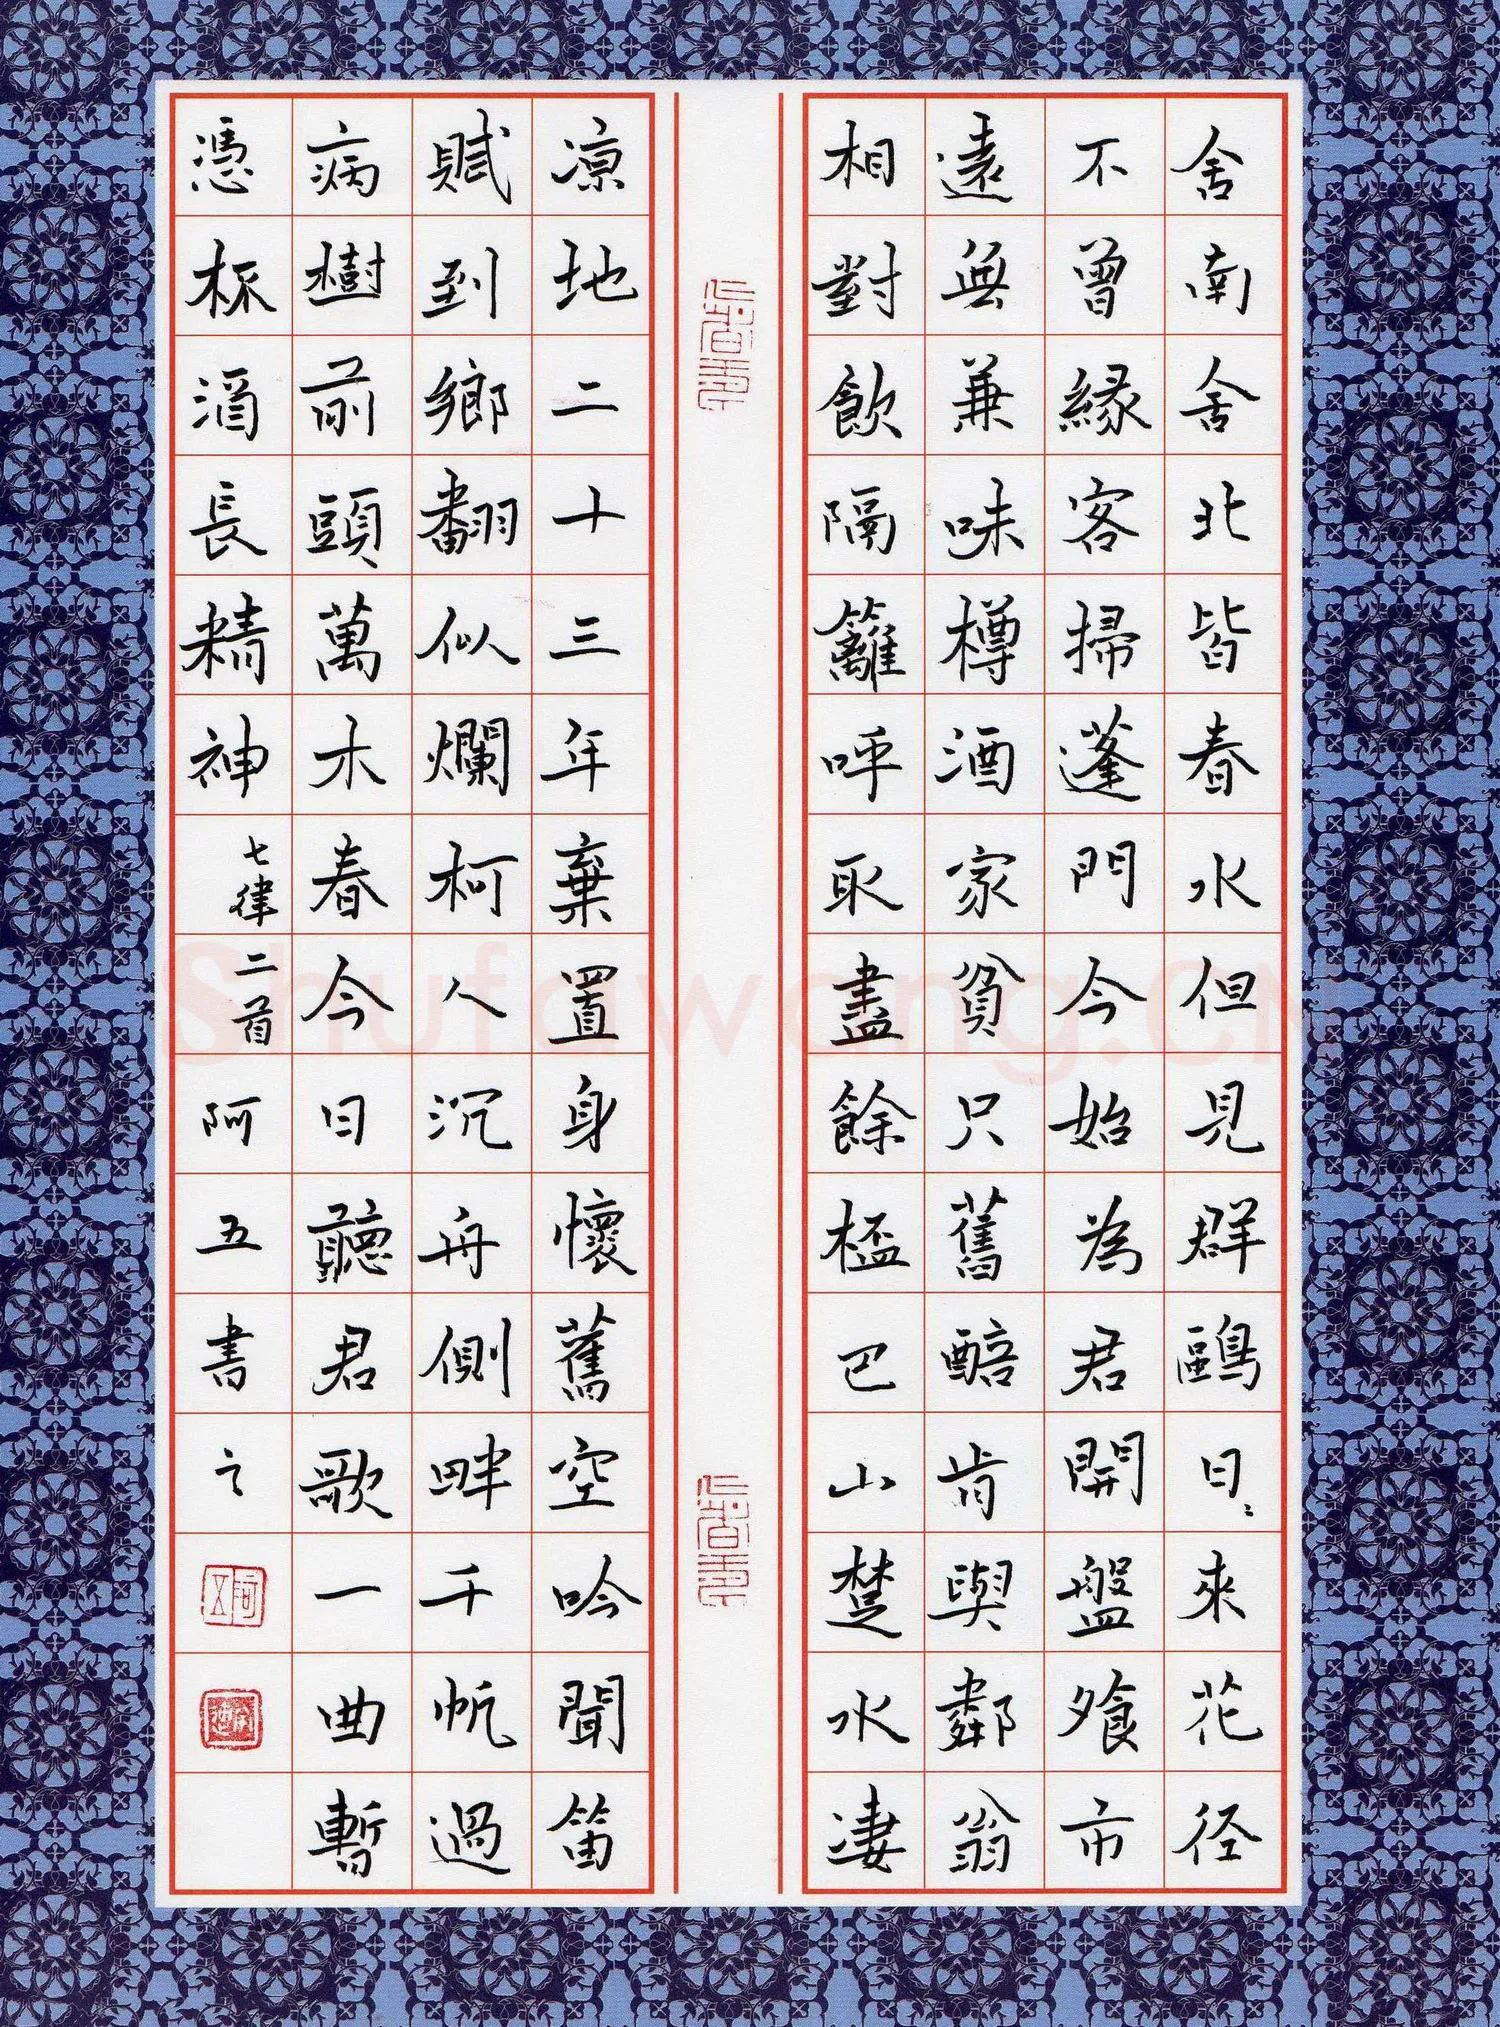 舍南舍北皆春水但見群鷗日〻來花徑
不曾緣客掃蓬門今始為君開盤飧市
遠無兼味樽酒家貧只舊醅肯與鄰翁
相對飲隔籬呼取盡餘杯巴山楚水凄
凉地二十三年棄置身懷舊空吟聞笛
賦到鄉翻似爛柯人沉舟側畔千帆過
病樹前頭萬木春今日聽君歌一曲暫
憑杯酒長精神七律二首阿五書之
阿五
Shufawang.CN